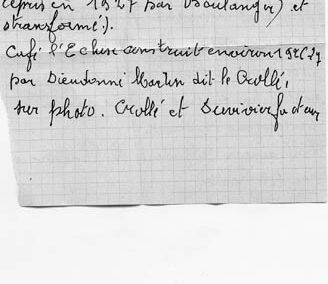 repris en 1927 par Boulanger) et
transformé).
Café l'Ecluse construit environ 1926/27
par Dieudonné Martin dit le Crollé,
sur photo. Crollé et Survivier